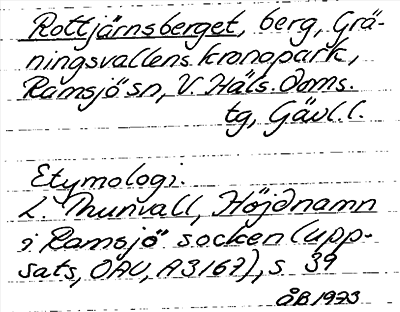 Rottjärnsberget, berg, Grä-
ningsvallens kronopark,
Ramsjö sn, V. Häls. Doms.
tg, Gävl. l.
Etymologi.
L. Thunvall, Höjdnamn
i Ramsjö socken (upp-
sats, OAU, A3167), s. 39
ÅB 1973